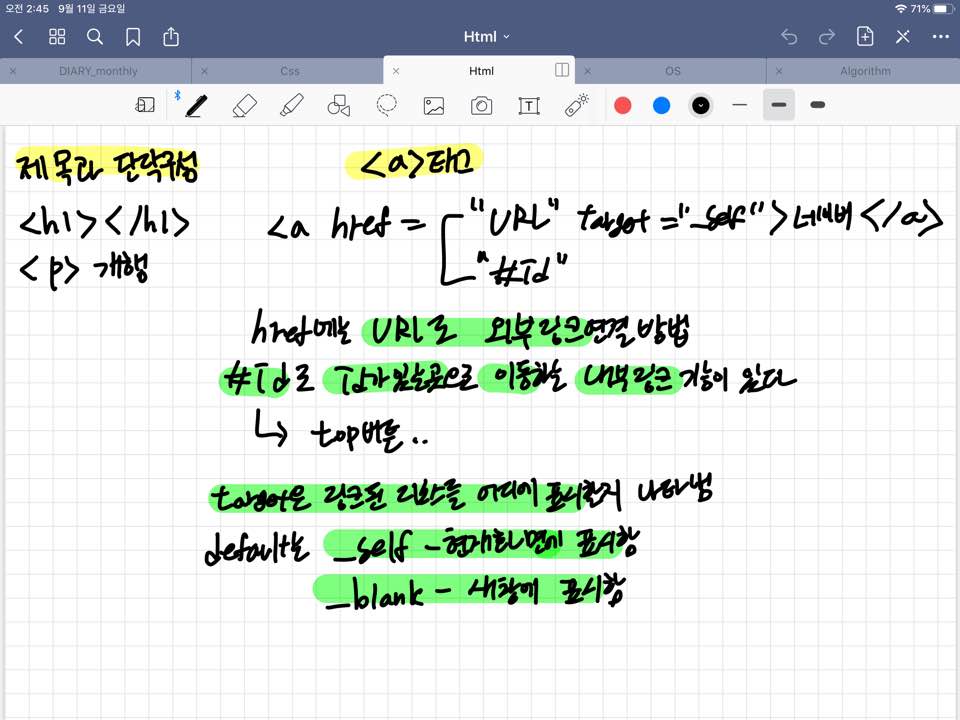 오전 2:45 9월 11일 금요일
71%
Html
DIARY_monthly
Css
Html
OS
Algorithm
제목과 단락구성
<h1></h1>
<p> 개행
<a>태그
<a href = "URL" target ="_self">네이버</a>
"#Id"
href에는 URL로 외부링크연결방법
#Id로 Id가 있는곳으로 이동하는 내부링크 기능이 있다
↳ top버튼..
target은 링크된 리소스를 어디에 표시할지 나타냄
default는 _self - 현재화면에 표시함
_blank - 새창에 표시함